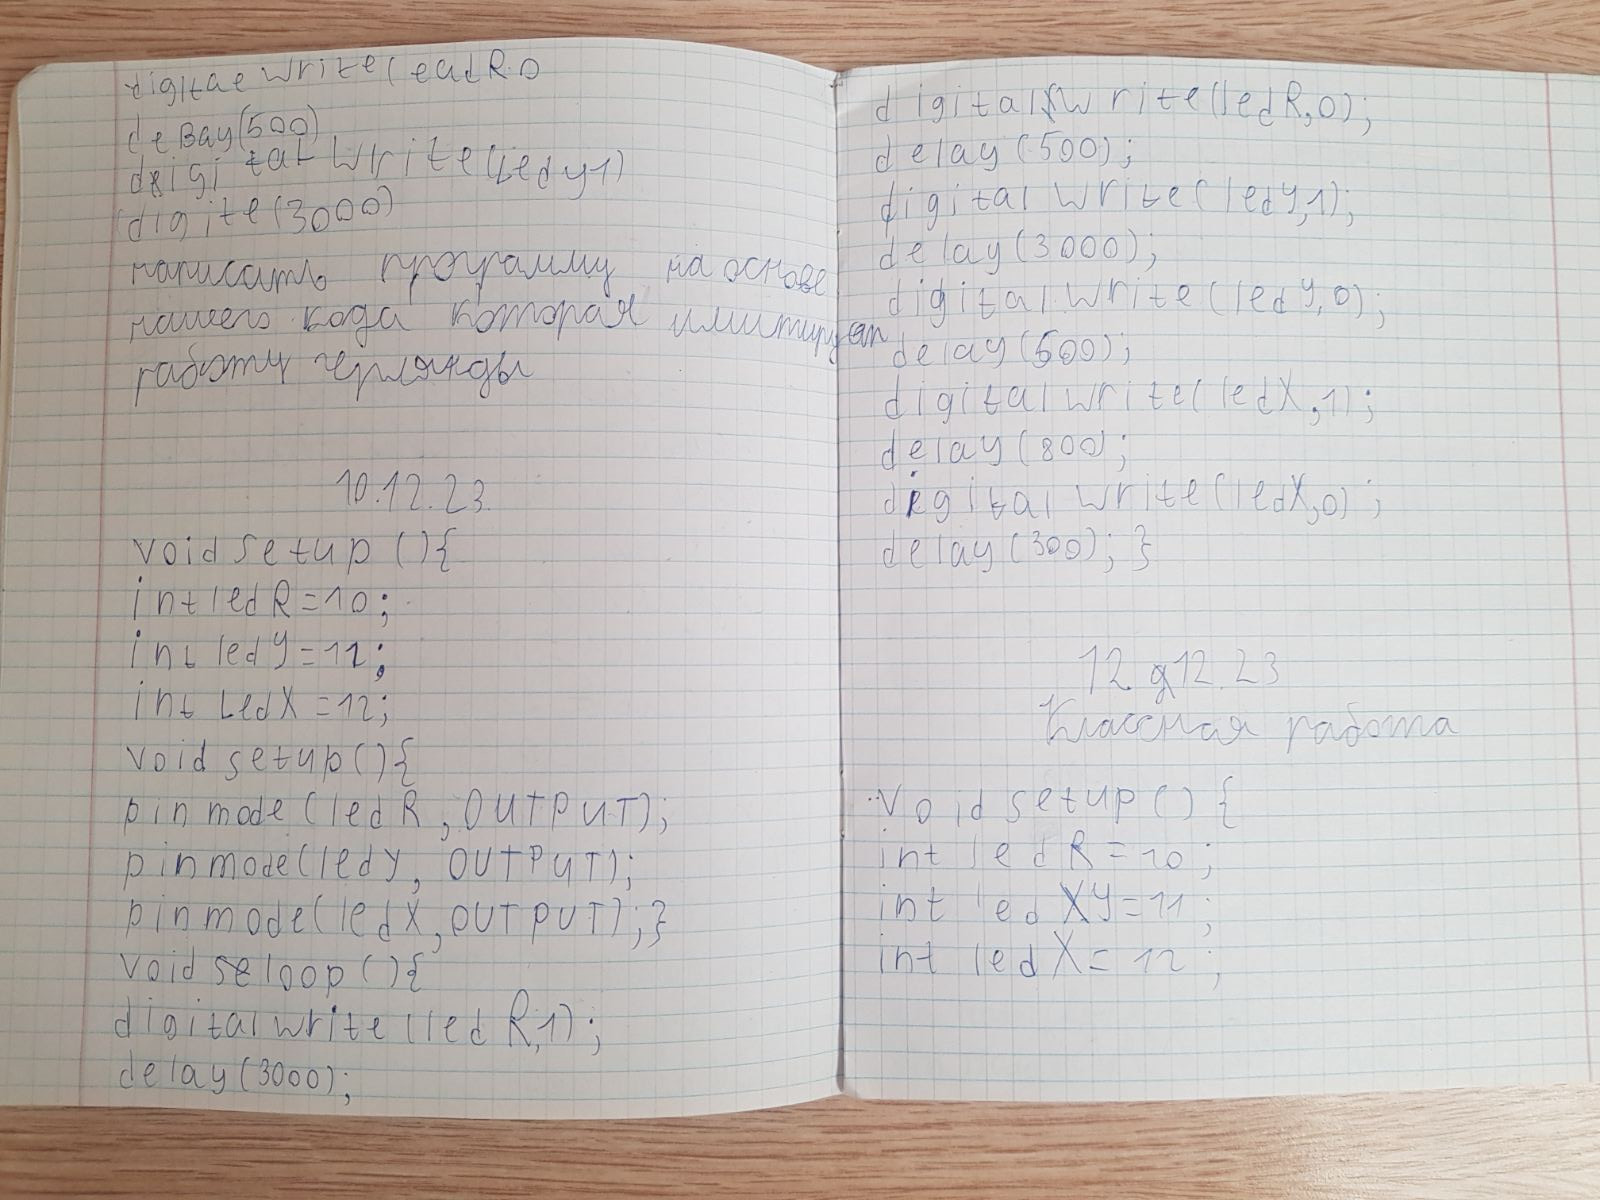 digitae write(eadR0
deBay(500)
digital write(Ledy1)
digite(3000)
написать программу на основе
нашего кода которая имитирует
работу герлянды
10.12.23.
void setup (){
int led R=10;
int led Y=11;
int Led X=12;
void setup(){
pin mode (led R, OUTPUT);
pin mode(led Y, OUTPUT);
pin mode(led X, OUTPUT);}
void se loop (){
digital write (led R,1);
delay(3000);
digital write(led R,0);
delay(500);
digital write(led Y,1);
delay(3000);
digital write(led Y,0);
delay(500);
digital write(led X,1);
delay(800);
digital write(led X,0);
delay(300); }
12.12.23
Классная работа
void setup () {
int led R=10;
int led XY=11;
int led X=12;